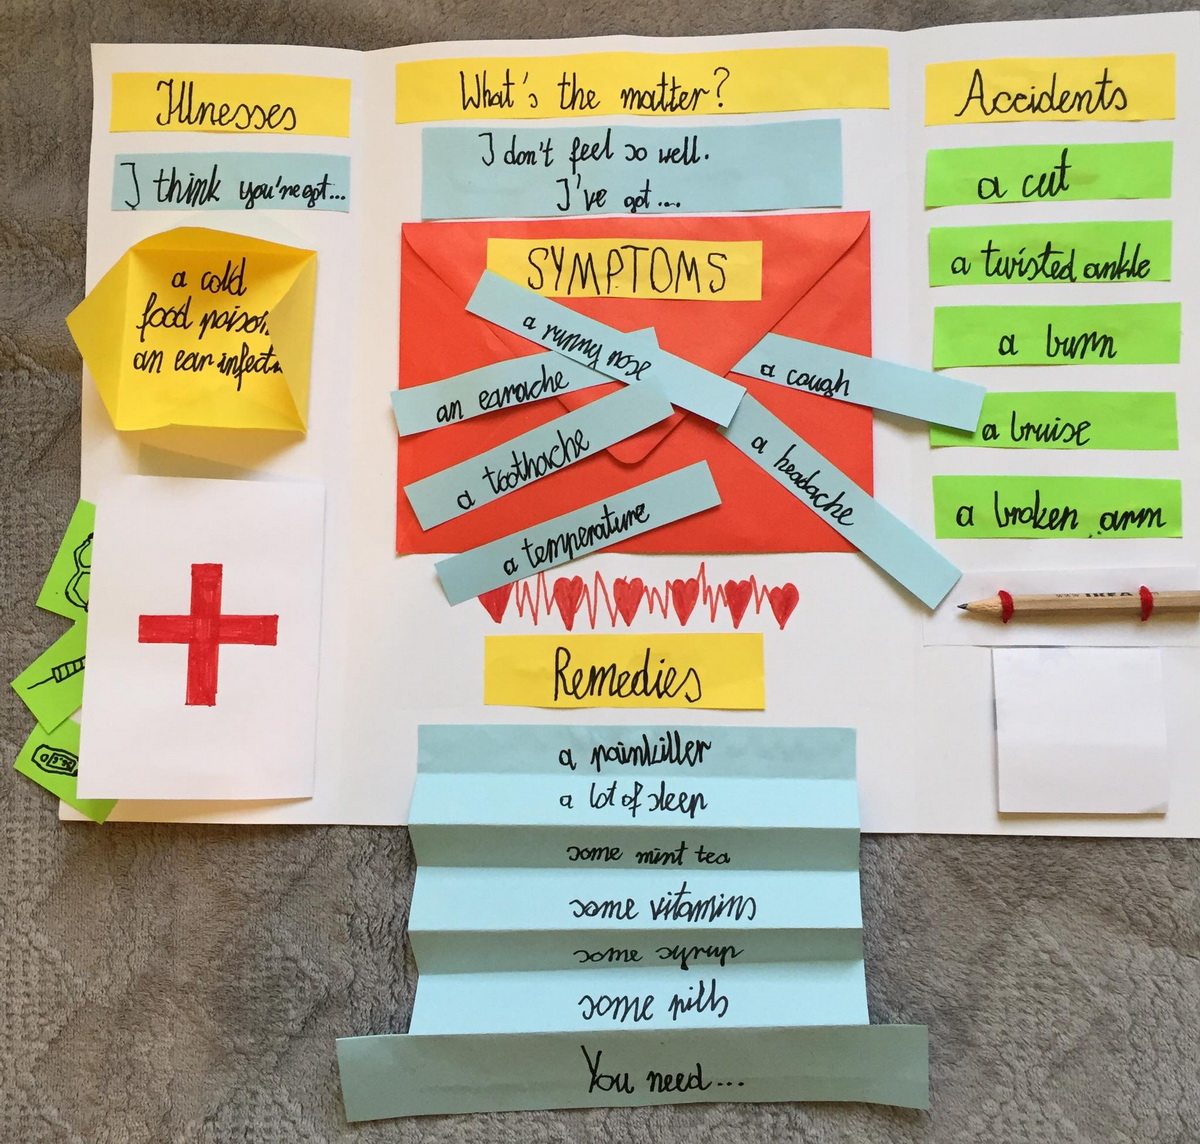 Illnesses
I think you're got...
a cold
food poison
an ear infect
What's the matter?
I don't feel so well.
I've got...
SYMPTOMS
a runny nose
an earache
a toothache
a temperature
a cough
a headache
Remedies
a painkiller
a lot of sleep
some mint tea
some vitamins
some syrup
some pills
You need...
Accidents
a cut
a twisted ankle
a burn
a bruise
a broken arm
IKEA